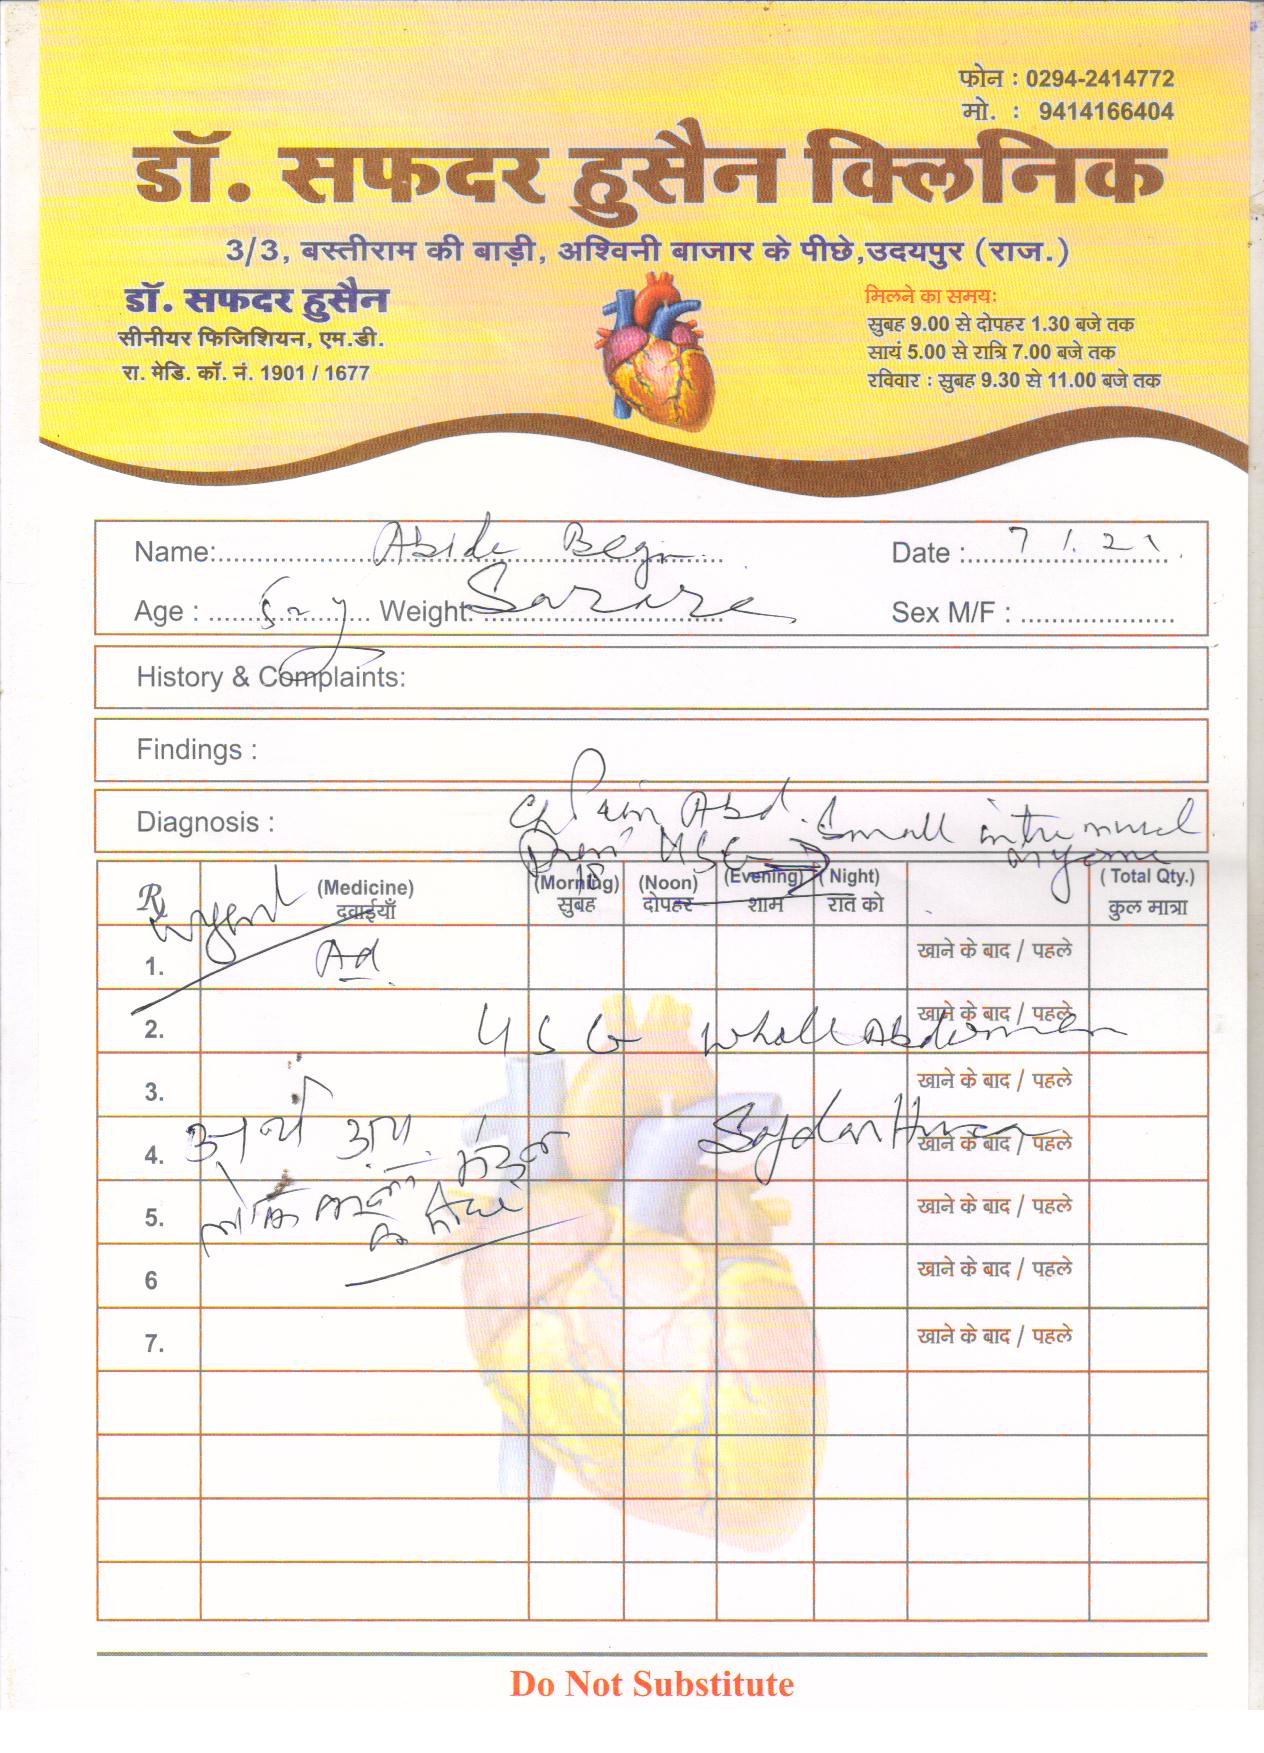 फोन : 0294-2414772
मो. : 9414166404
डॉ. सफदर हुसैन क्लिनिक
3/3, बस्तीराम की बाड़ी, अश्विनी बाजार के पीछे,उदयपुर (राज.)
डॉ. सफदर हुसैन
सीनीयर फिजिशियन, एम.डी.
रा. मेडि. कॉ. नं. 1901 / 1677
मिलने का समय:
सुबह 9.00 से दोपहर 1.30 बजे तक
सायं 5.00 से रात्रि 7.00 बजे तक
रविवार : सुबह 9.30 से 11.00 बजे तक
Name: Abide Date : 7 1. 21
Age : Weight: Sex M/F :
History & Complaints:
Findings :
Diagnosis : Pain Abd. Small
USG
Rx (Medicine) (Morning) (Noon) (Evening) (Night) ( Total Qty.)
दवाईयाँ सुबह दोपहर शाम रात को कुल मात्रा
Urgent
1. Ad खाने के बाद / पहले
2. खाने के बाद / पहले
USG Whole Abdomen
3. खाने के बाद / पहले
4. खाने के बाद / पहले
5. खाने के बाद / पहले
6 खाने के बाद / पहले
7. खाने के बाद / पहले
Do Not Substitute